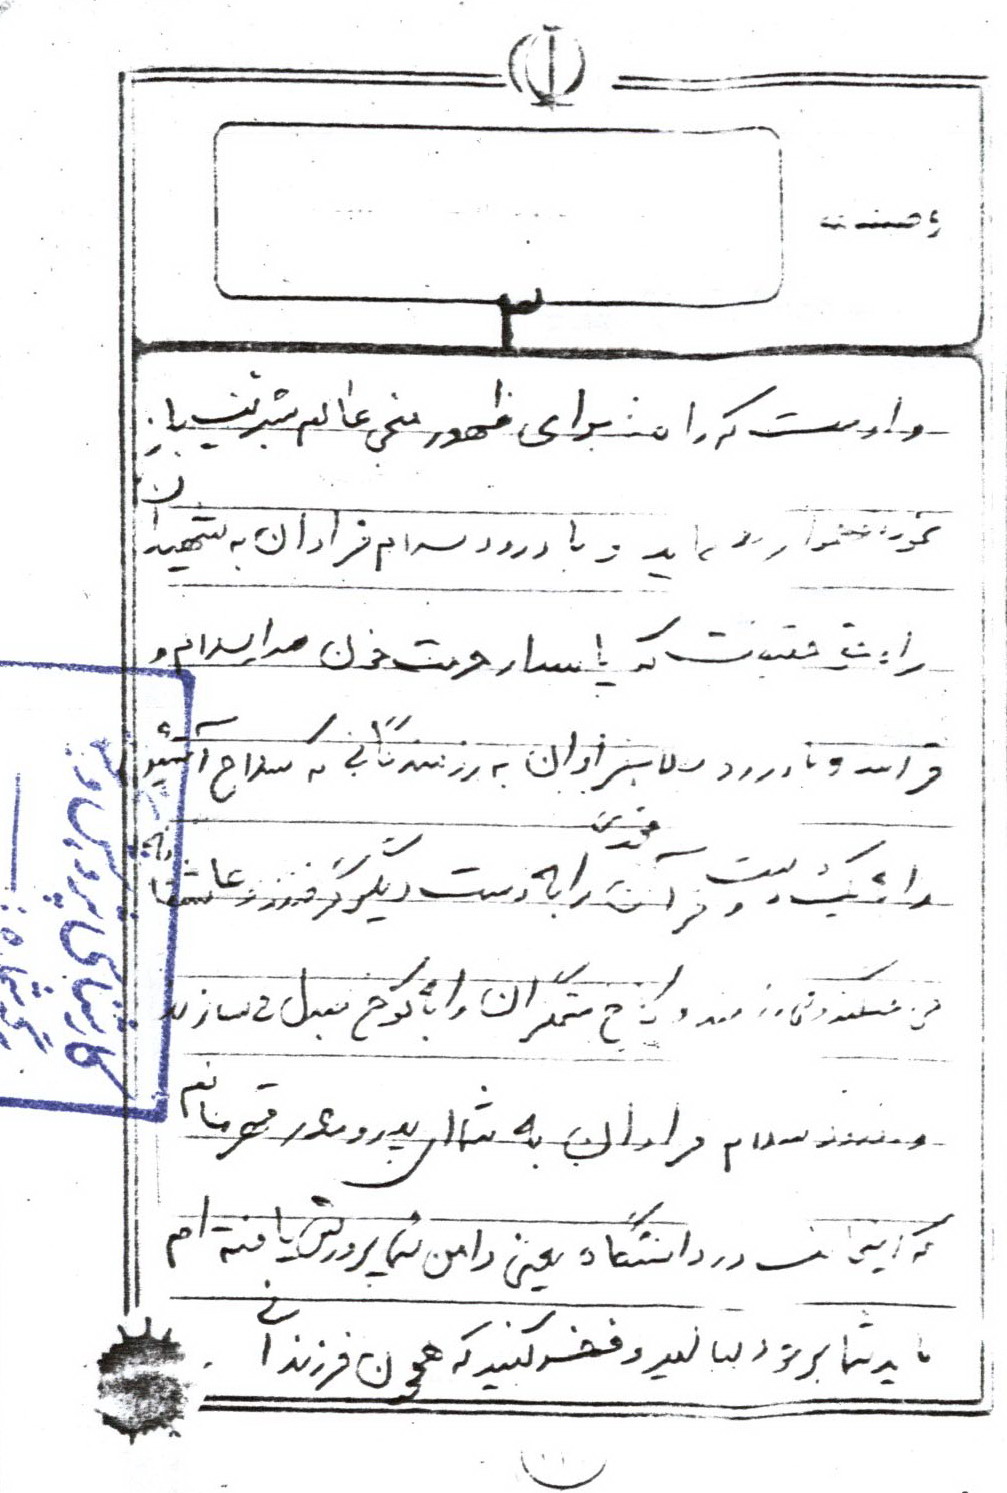 وصیتنامه
۳
و اوست که راهش برای ظهور منجی عالم بشریت باز
نموده هموار می نماید و با درود سلام فراوان به شهیدان
راه حق حقیقت که پاسدار حرمت خون اسلام و
قرآنند و با درود سلام فراوان به رزمندگانی که سلاح آتشین
را به یک دست و قرآن را به دست دیگر گرفتند و عاشقانه
می جنگند و می رزمند و کاخ ستمگران را به کوخ مبدل می سازند
و سلام فراوان به شما ای پدر و مادر قهرمانم
که اینجانب در دانشگاه یعنی دامن شما پرورش یافته ام
باید شما بر خود ببالید و فخر کنید که همچون فرزندانی